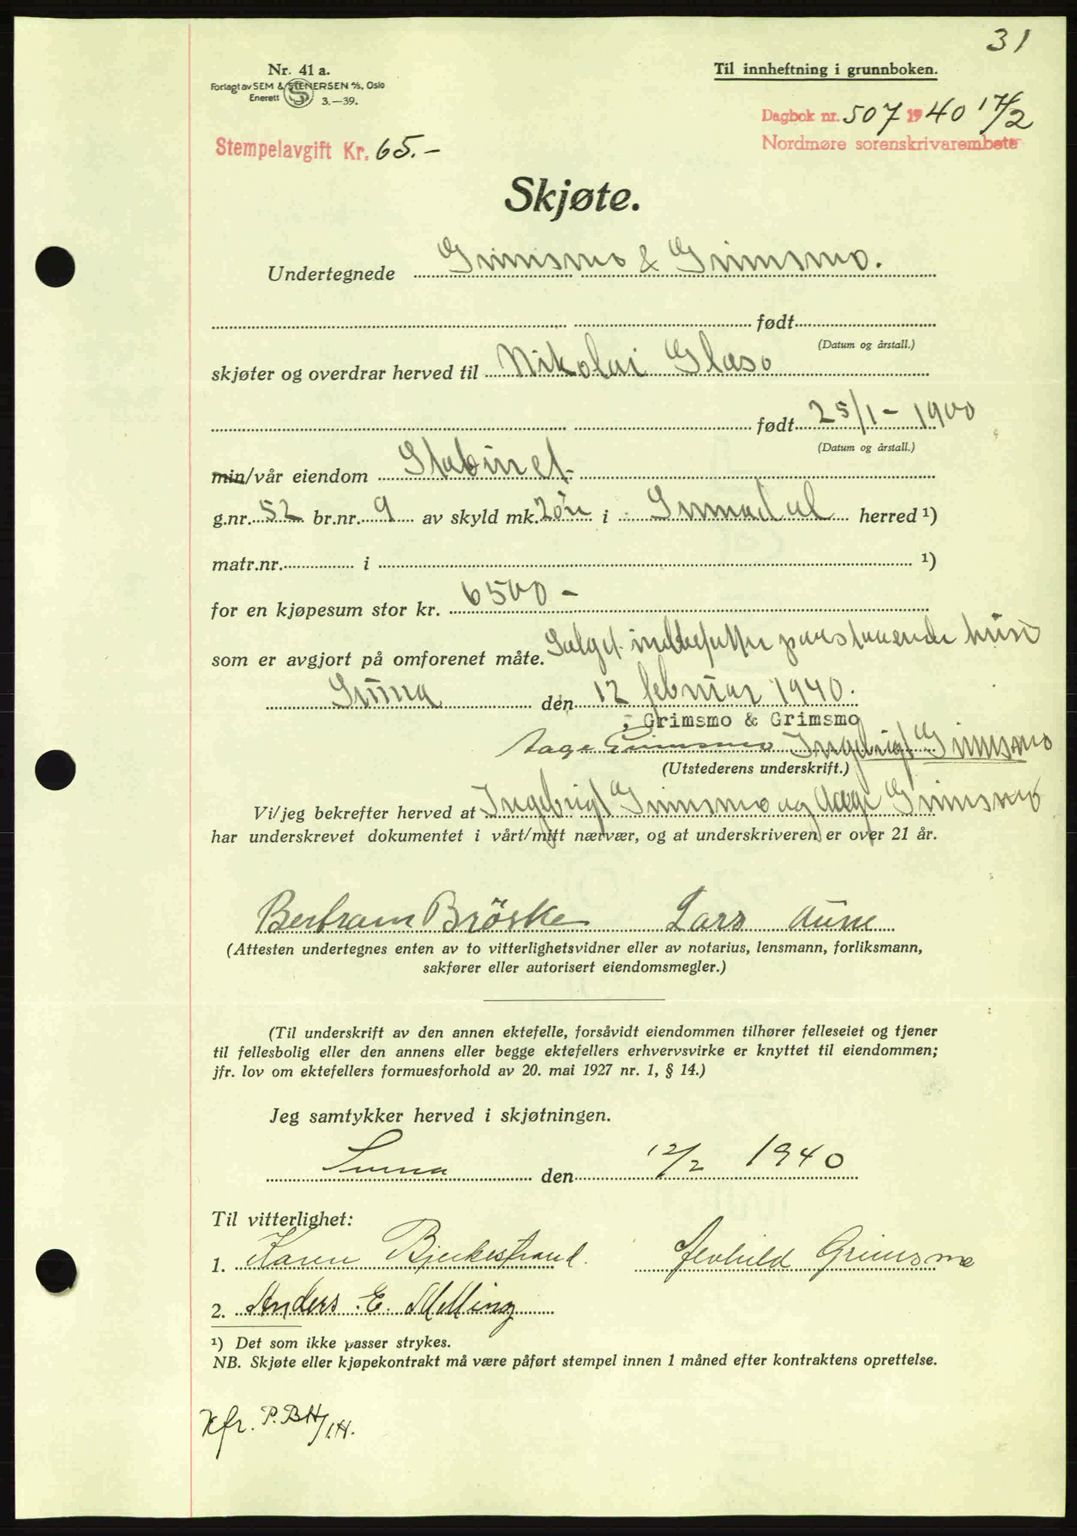 31
Nr. 41 a.
Forlagt av SEM & STENERSEN A/S, Oslo
Enerett S 3.—39.
Til innheftning i grunnboken.
Dagbok nr. 507 1940 17/2
Nordmøre sorenskrivarembete
Stempelavgift Kr. 65.-
Skjøte.
Undertegnede Grimsmo & Grimsmo.
født
(Datum og årstall.)
skjøter og overdrar herved til Nikolai Glæso
født 25/1 - 1900
(Datum og årstall.)
min/vår eiendom
g.nr. 52 br.nr. 9 av skyld mk. 2 øre i Sunndal herred ¹)
matr.nr. i ¹)
for en kjøpesum stor kr. 6500 -
som er avgjort på omforenet måte. Salget indbefatter paastaaende hus
Sunna den 12 februar 1940.
Grimsmo & Grimsmo
Aage Grimsmo Ingebrigt Grimsmo
(Utstederens underskrift.)
Vi/jeg bekrefter herved at Ingebrigt Grimsmo og Aage Grimsmo
har underskrevet dokumentet i vårt/mitt nærvær, og at underskriveren er over 21 år.
Bertram Brøske Lars Aune
(Attesten undertegnes enten av to vitterlighetsvidner eller av notarius, lensmann, forliksmann,
sakfører eller autorisert eiendomsmegler.)
(Til underskrift av den annen ektefelle, forsåvidt eiendommen tilhører felleseiet og tjener
til fellesbolig eller den annens eller begge ektefellers erhvervsvirke er knyttet til eiendommen;
jfr. lov om ektefellers formuesforhold av 20. mai 1927 nr. 1, § 14.)
Jeg samtykker herved i skjøtningen.
Sunna den 12/2 1940
Til vitterlighet:
1. Karen Bjerkestrand. Grimsmo
2. Anders E. Melling
¹) Det som ikke passer strykes.
NB. Skjøte eller kjøpekontrakt må være påført stempel innen 1 måned efter kontraktens oprettelse.